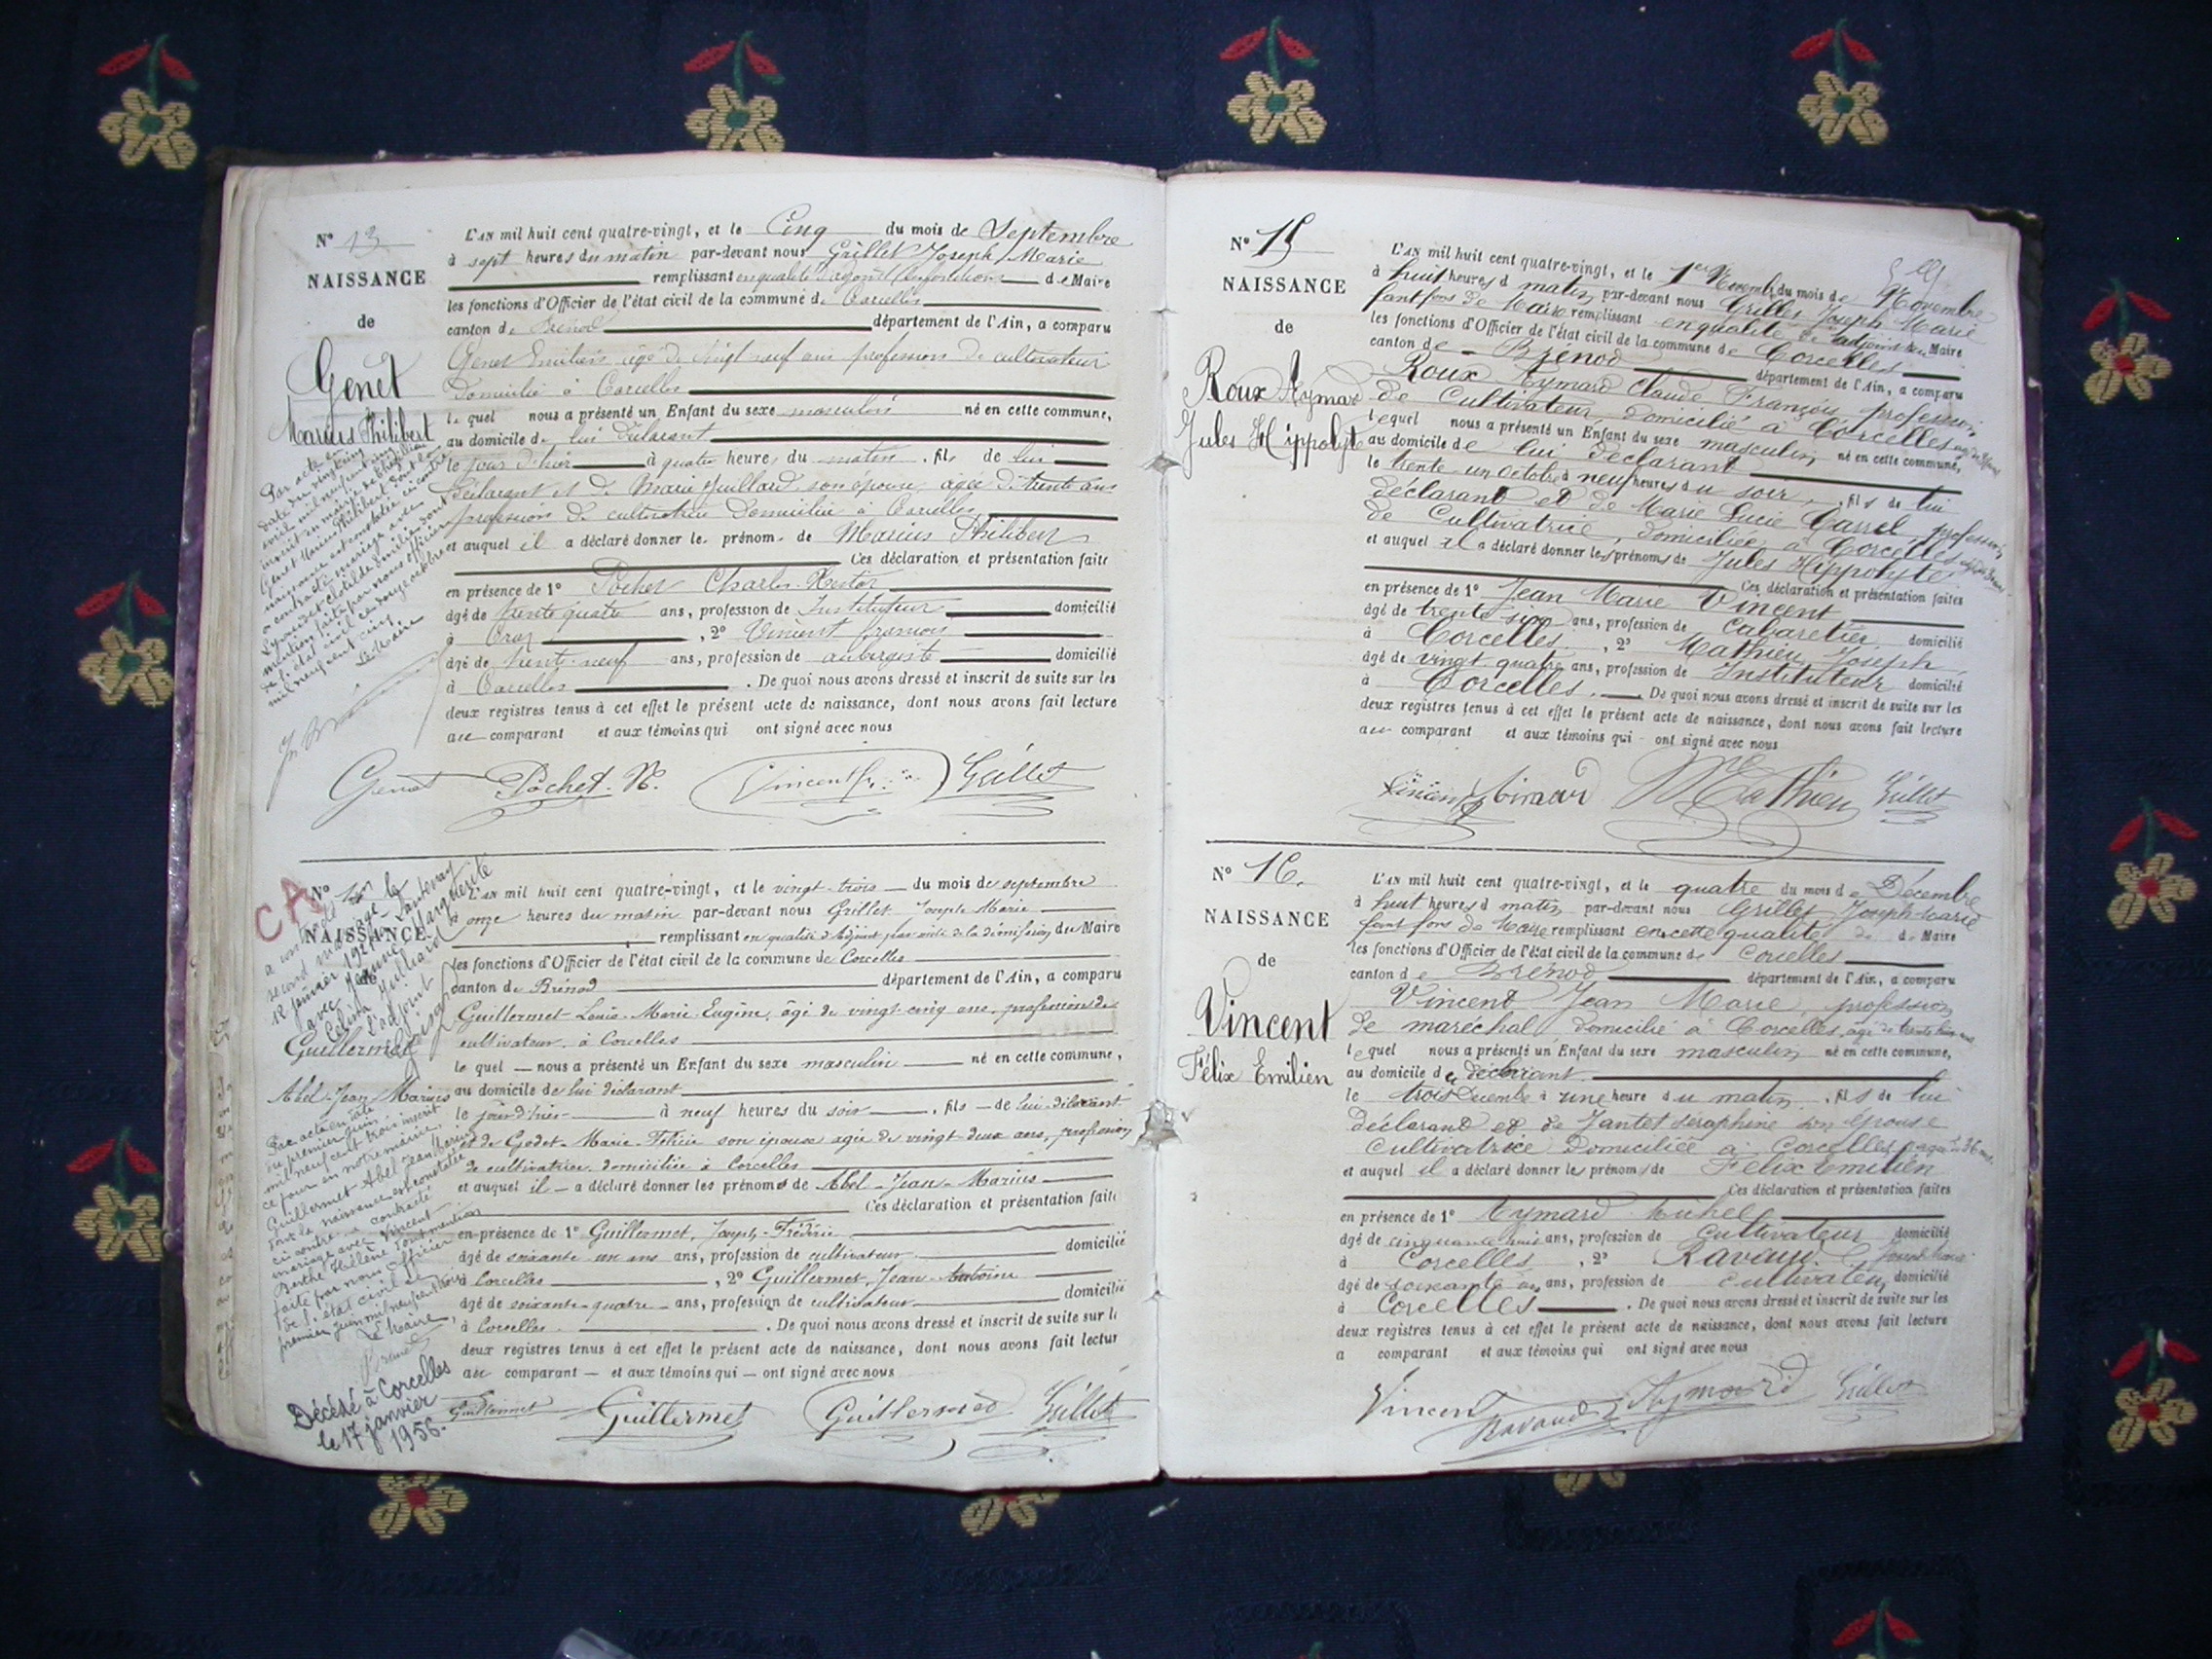 N° 13
NAISSANCE
de
Genet
Marius Philibert
L'AN mil huit cent quatre-vingt, et le Cinq du mois de Septembre
à sept heures du matin par-devant nous Grillet Joseph Marie
remplissant en qualité d'adjoint les fonctions de Maire
les fonctions d'Officier de l'état civil de la commune de Corcelles
canton de Brénod département de l'Ain, a comparu
Genet Emilien âgé de vingt neuf ans profession de cultivateur
Domicilié à Corcelles
le quel nous a présenté un Enfant du sexe masculin né en cette commune,
au domicile de lui déclarant
le jour d'hier à quatre heures du matin, fils de lui
déclarant et de Marie Juillard son épouse, âgée de trente ans
profession de cultivatrice Domiciliée à Corcelles
et auquel il a déclaré donner le prénom de Marius Philibert
Ces déclaration et présentation faite
en présence de 1° Pochet Charles
âgé de trente quatre ans, profession de Instituteur domicilié
à , 2° Vincent François
âgé de trente-neuf ans, profession de aubergiste domicilié
à Corcelles . De quoi nous avons dressé et inscrit de suite sur les
deux registres tenus à cet effet le présent acte de naissance, dont nous avons fait lecture
au comparant et aux témoins qui ont signé avec nous
Genet Pochet. Vincent Grillet
Par acte en
date du vingt cinq
mil neuf cent cinq
inscrit en mairie
Genet Marius Philibert dont la
naissance est constatée ci contre
a contracté mariage avec
Clotilde Emilie dont
mention faite par nous officier
de l'état civil ce douze octobre
mil neuf cent cinq
Le Maire
CA
N° 14
NAISSANCE
Guillermet
Abel-Jean Marius
a contracté
second mariage le
12 janvier 1921 à Lantenay
avec Jeanne Marguerite
Juillard
L'adjoint
L'AN mil huit cent quatre-vingt, et le vingt-trois du mois de septembre
à onze heures du matin par-devant nous Grillet Joseph Marie
remplissant en qualité d'Adjoint par suite de la démission du Maire
les fonctions d'Officier de l'état civil de la commune de Corcelles
canton de Brénod département de l'Ain, a comparu
Guillermet Louis-Marie-Eugène, âgé de vingt-cinq ans, profession de
cultivateur, à Corcelles
le quel — nous a présenté un Enfant du sexe masculin né en cette commune,
au domicile de lui déclarant
le jour d'hier à neuf heures du soir, fils de lui-déclarant
et de Godet-Marie-Félicie son épouse agée de vingt-deux ans, profession
de cultivatrice, domiciliée à Corcelles
et auquel il — a déclaré donner les prénoms de Abel-Jean-Marius
Ces déclaration et présentation faite
en présence de 1° Guillermet, Joseph-Frédéric
âgé de soixante un ans ans, profession de cultivateur domicilié
à Corcelles , 2° Guillermet, Jean-Antoine
âgé de soixante-quatre ans, profession de cultivateur domicilié
à Corcelles . De quoi nous avons dressé et inscrit de suite sur le
deux registres tenus à cet effet le présent acte de naissance, dont nous avons fait lectur
au comparant — et aux témoins qui — ont signé avec nous
Guillermet Guillermet Guillermet Grillet
Par acte en date
du premier juin
mil neuf cent trois inscrit
ce jour en notre mairie,
Guillermet Abel Jean Marius
dont la naissance est constatée
ci contre a contracté
mariage avec Vincent
Berthe Hélène dont mention
faite par nous officier
de l'état civil ce
premier juin mil neuf cent trois
Le Maire,
Décédé à Corcelles
le 17 janvier
1956.
N° 15
NAISSANCE
de
Roux Aymard
Jules Hippolyte
L'AN mil huit cent quatre-vingt, et le 1er Novembre du mois de Novembre
à huit heures du matin par-devant nous Grillet Joseph Marie
fesant fons de Maire remplissant en qualité de adjoint au Maire
les fonctions d'Officier de l'état civil de la commune de Corcelles
canton de Brénod département de l'Ain, a comparu
Roux Aymard Claude François, profession
de Cultivateur, domicilié à Corcelles
lequel nous a présenté un Enfant du sexe masculin né en cette commune,
au domicile de lui déclarant
le trente-un octobre à neuf heures du soir, fils de lui
déclarant et de Marie Lucie Carrel, profession
de Cultivatrice, domiciliée à Corcelles
et auquel il a déclaré donner les prénoms de Jules Hippolyte
Ces déclaration et présentation faites
en présence de 1° Jean Marie Vincent
âgé de trente-six ans, profession de Cabaretier domicilié
à Corcelles, 2° Mathieu Joseph
âgé de vingt quatre ans, profession de Instituteur domicilié
à Corcelles. De quoi nous avons dressé et inscrit de suite sur les
deux registres tenus à cet effet le présent acte de naissance, dont nous avons fait lecture
au comparant et aux témoins qui ont signé avec nous
Vincent Mathieu Grillet
N° 16.
NAISSANCE
de
Vincent
Félix Emilien
L'AN mil huit cent quatre-vingt, et le quatre du mois de Décembre
à huit heures du matin par-devant nous Grillet Joseph-Marie
fesant fons de Maire remplissant en cette qualité de Maire
les fonctions d'Officier de l'état civil de la commune de Corcelles
canton de Brénod département de l'Ain, a comparu
Vincent Jean Marie, profession
de maréchal domicilié à Corcelles
lequel nous a présenté un Enfant du sexe masculin né en cette commune,
au domicile du déclarant
le trois Décembre à une heure du matin, fils de lui
déclarant et de Jantet Séraphine son épouse
Cultivatrice Domiciliée à Corcelles, agée de 36 ans
et auquel il a déclaré donner les prénoms de Félix Emilien
Ces déclaration et présentation faites
en présence de 1° Aymard Michel
âgé de cinquante huit ans, profession de Cultivateur domicilié
à Corcelles, 2° Ravaud Joseph Marie
âgé de soixante ans, profession de Cultivateur domicilié
à Corcelles. De quoi nous avons dressé et inscrit de suite sur les
deux registres tenus à cet effet le présent acte de naissance, dont nous avons fait lecture
a comparant et aux témoins qui ont signé avec nous
Vincent Ravaud Aymard Grillet